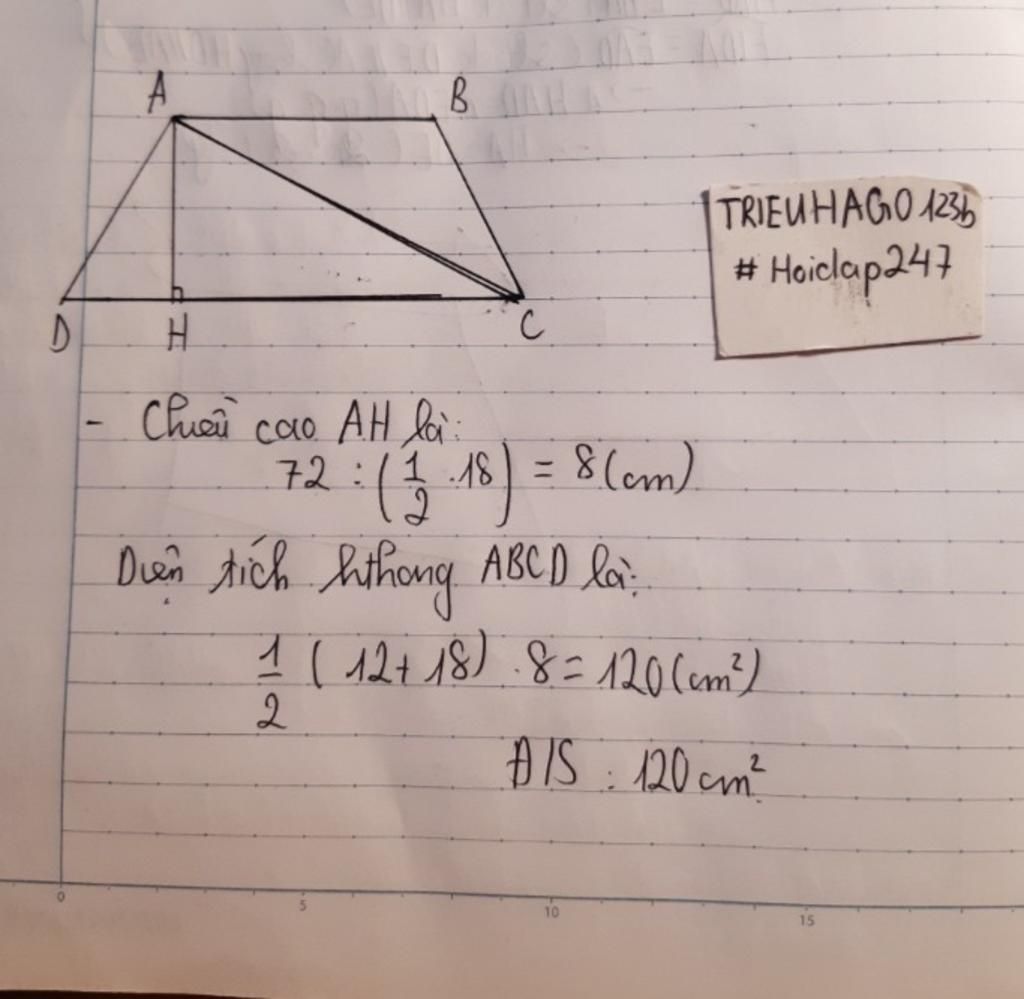 A B
TRIEUHAGO123b
# Hoidap247
D H C
- Chiều cao AH là:
72 : (1/2 . 18) = 8 (cm)
Diện tích hthang ABCD là:
1/2 (12 + 18) . 8 = 120 (cm²)
Đ/S : 120 cm²
0 5 10 15